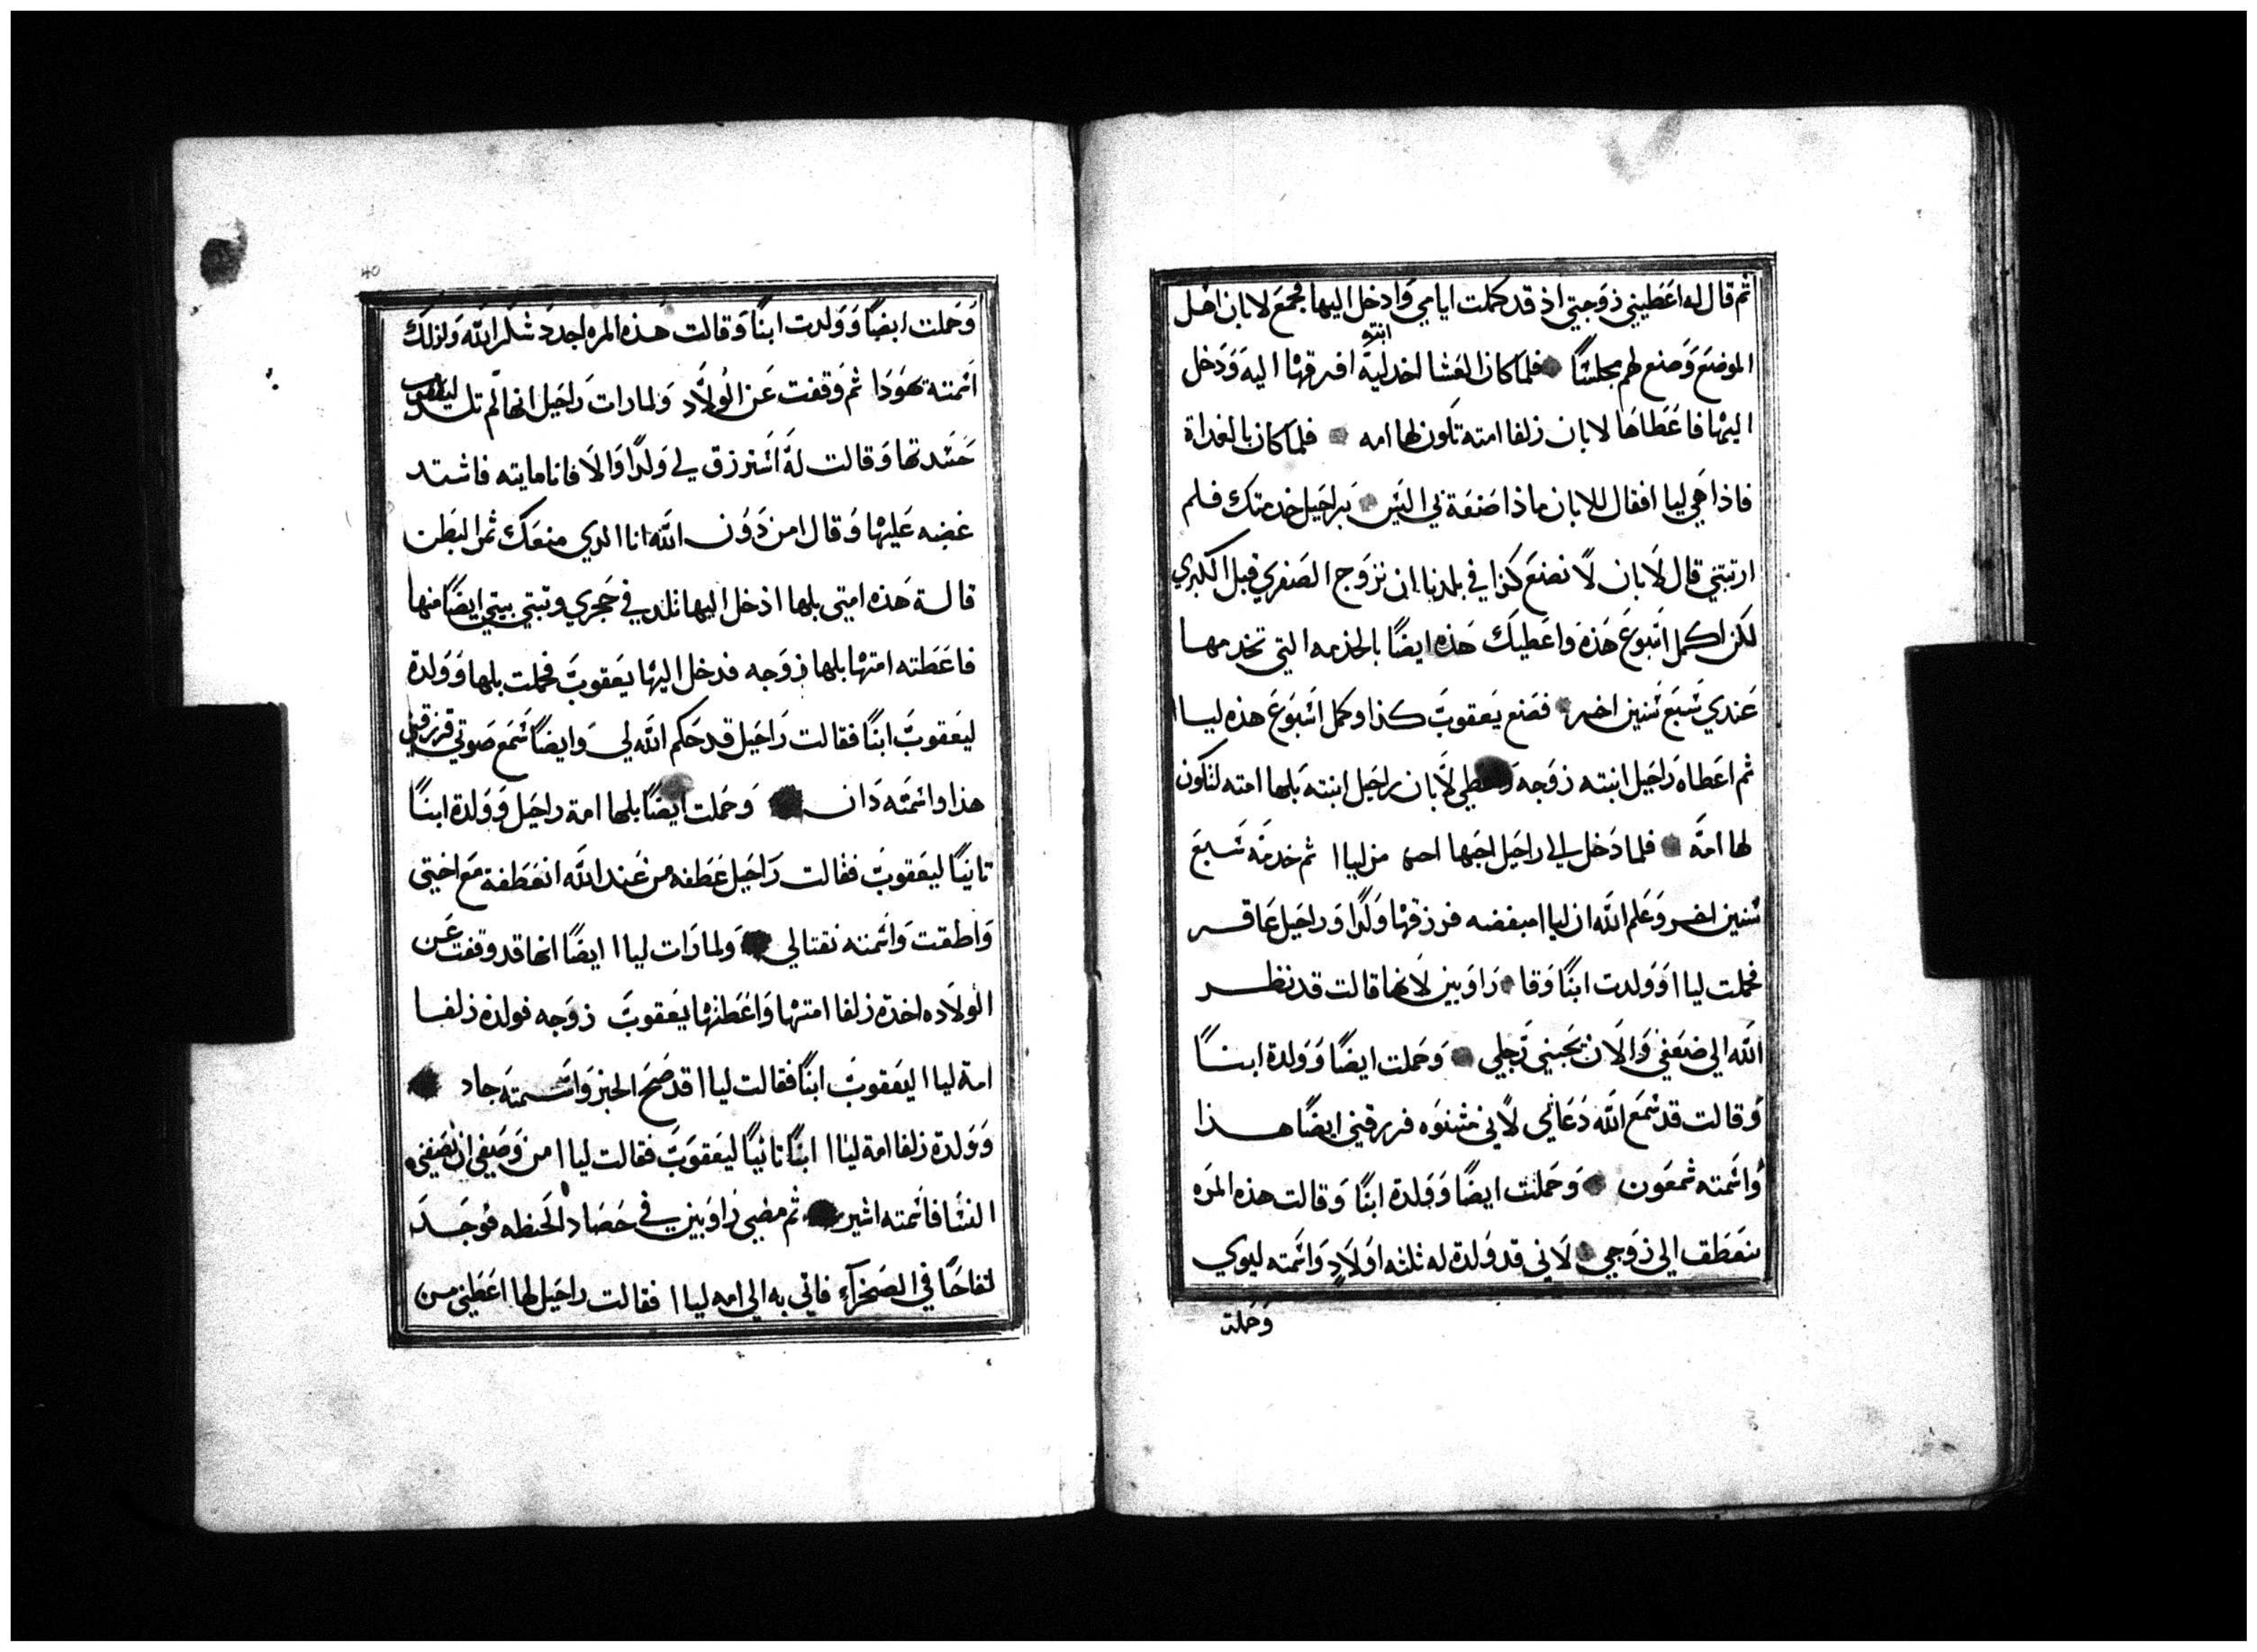 ثم قال له اعَطيني زوَجتي اذ قد كملت ايامي وَادخل اليها فجمعَ لابان اهَل
الموضعَ وَصَنع لهم مجلسًا فلما كان العَشا اخد ليَة ابنته افرقهَا اليهَ وَدَخل
اليهَا فاعَطاهَا لابان زلفا امته تكون لها امه فلما كان بالغداة
فاذا هَي ليا افقال للابان ماذا صَنعَة بي اليَس بَراحَيل خدمتك فلم
ارتبتني قال لَابان لَا نصَنعَ كذا في بلدنا ان نزوَج الصَغري قبل الكبري
لكن اكمل اسَبوعَ هَذة وَاعَطيك هَذه ايضًا بالخدمه التي تخدمها
عَندي سَبعَ سَنين اخر فصَنع يَعقوبَ كذا وكمل اسَبوَعَ هذه ليا ا
ثم اعَطاه رَاحيَل ابنته زوَجه وَاعطي لَابان راحَيل ابنته بلها امته لتكون
لها امَة فلما دَخل الي راحَيل احَبها من ليا ا ثم خدمَه سَبعَ
سَنين اخر وَعَلم الله ان ليا ا مبغضه فرزقهَا وَلدًا وَراحَيل عَاقر
فحملت ليا ا وَوَلدت ابنًا وَقا رَاوَبين لَانها قالت قد نظر
الله الي ضعَفي وَالَان يحَبني رَجلي وَحَملت ايضًا وَوَلدة ابنًا
وَقالت قد سَمعَ الله دَعَائي لَاني مشنوَه فرزقني ايضًا هذا
وَاسَمته شمعَون وَحَملت ايضًا وَوَلدة ابنًا وَقالت هذه المرَه
ينعَطف الي زوَجي لَاني قد وَلدة له ثلثه اوَلَادٍ وَاسَمته ليوي
وَحَملت
40
وَحَملت ايضًا وَوَلدت ابنًا وَقالت هَذه المره اجدد شكر الله وَلذلك
اسَمته يهَوَدَا ثم وَقفت عَن الوَلَاد وَلما رات رَاحَيل انها لم تلد ليعَقوب
حَسَدتها وَقالت لهَ اسَترزق لي وَلدًا وَالَا فانا مايته فاشتد
غضبه عَليهَا وَقال امن دَوَن الله انا الدي منعَك ثمر البَطن
قالة هَذه امتي بلها ادخل اليها تلد في حَجري وتبتي بيتي ايضًا منها
فاعَطته امتهَا بلها زوَجه فدخل اليهَا يَعقوبَ فحملت بلها وَوَلدة
ليعَقوبَ ابنًا فقالت رَاحَيل قد حَكم الله لي وَايضًا سَمعَ صَوتي فرزقني
هذا وَاسَمته دَان وَحَملت ايضًا بلها امة راحَيل وَوَلدة ابنًا
ثانيًا ليعَقوبَ فقالت رَاحَيل عَطفه من عَند الله انعَطفة مَع اختي
وَاطقت وَاسَمته نفتالي وَلما رَات ليا ا ايضًا انها قد وقفت عَن
الوَلَاده اخدة زلفا امتهَا وَاعَطتهَا يعَقوبَ زوَجه فولدة زلفا
امة ليا ا ليعَقوبَ ابنًا فقالت ليا ا قد صَح الخبز وَاسَمتهَ جاد
وَوَلدة زلفا امة ليا ا ابنًا ثانيًا ليعَقوَبَ فقالت ليا ا من وَصَفي ان تصَفني
النسَا فاسَمته اشير ثم مضي رَاوَبين في حَصَاد الحَنطه فوَجَدَ
لفاحًا في الصَحَرآءِ فاتي به الي امه ليا ا فقالت راحَيل لها اعَطيني من